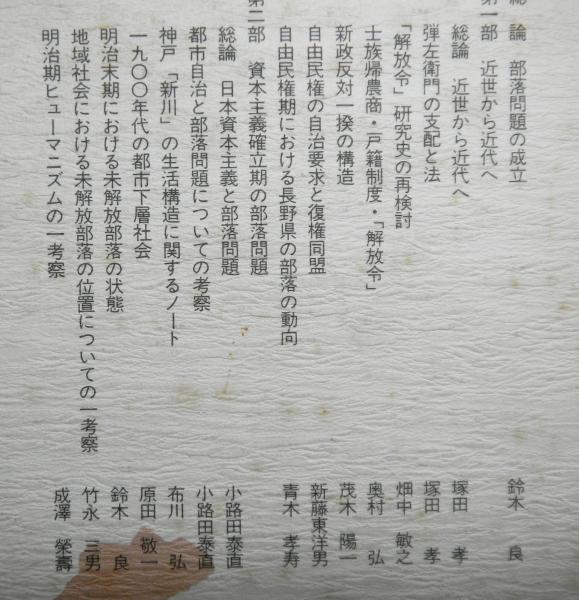 総論 部落問題の成立 鈴木 良
第一部 近世から近代へ
総論 近世から近代へ 塚田 孝
弾左衛門の支配と法 塚田 孝
「解放令」研究史の再検討 畑中 敏之
士族帰農商・戸籍制度・「解放令」 奥村 弘
新政反対一揆の構造 茂木 陽一
自由民権の自治要求と復権同盟 新藤東洋男
自由民権期における長野県の部落の動向 青木 孝寿
第二部 資本主義確立期の部落問題
総論 日本資本主義と部落問題 小路田泰直
都市自治と部落問題についての考察 小路田泰直
神戸「新川」の生活構造に関するノート 布川 弘
一九〇〇年代の都市下層社会 原田 敬一
明治末期における未解放部落の状態 鈴木 良
地域社会における未解放部落の位置についての一考察 竹永 三男
明治期ヒューマニズムの一考察 成澤 榮壽